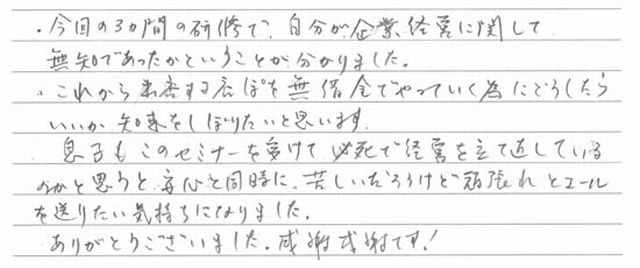 ・今回の3カ間の研修で、自分が企業経営に関して
無知であったかということが分かりました。
・これから来店する店ぽを無借金でやっていく為にどうしたら
いいか知恵をしぼりたいと思います。
息子もこのセミナーを受けて必死で経営を立て直している
のかと思うと、安心と同時に、苦しいだろうけど頑張れとエール
を送りたい気持ちになりました。
ありがとうございました。感謝感謝です!